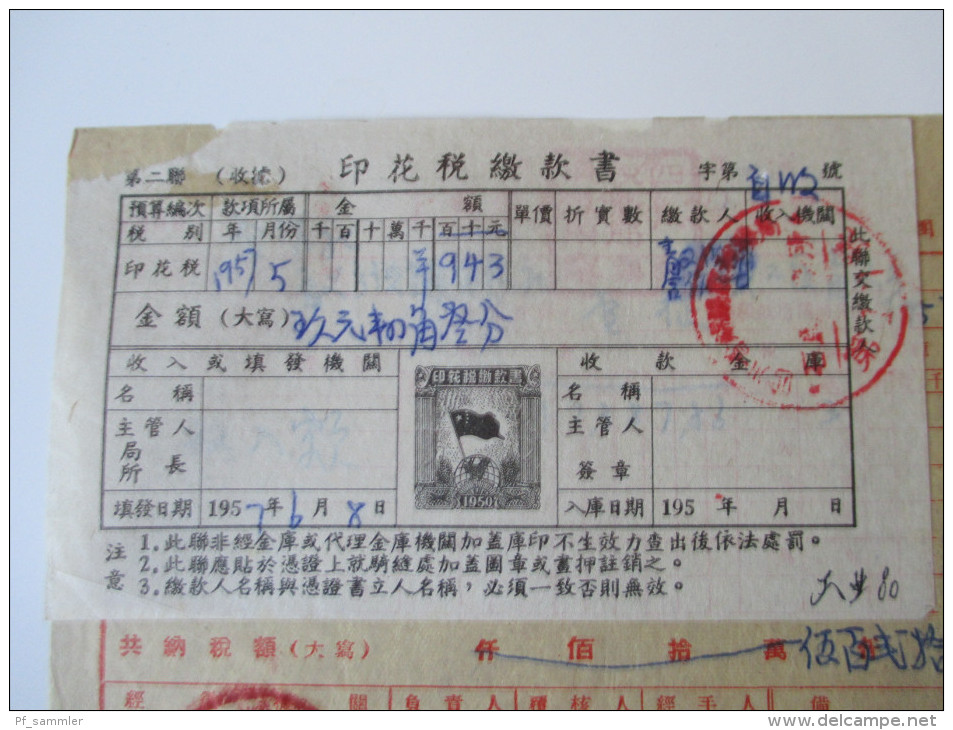 印花税繳款書
第二聯 (收據) 字第 號
預算編次 款項所屬 金 額 單價 折實數 繳款人 收入機關
税 别 年 月份 千 百 十 萬 千 百 十 元
印花税 1957 5 9 4 3
金額(大寫) 玖元 角叁分
此聯交繳款人
收入或填發機關 收款金庫
印花税繳款書
名稱 名稱
主管人 主管人
局所長 簽章
1950
填發日期 1957年6月8日 入庫日期 195 年 月 日
注意 1.此聯非經金庫或代理金庫機關加盖庫印不生效力查出後依法處罰。
2.此聯應貼於憑證上就騎縫處加盖圖章或畫押註銷之。
3.繳款人名稱與憑證書立人名稱,必須一致否則無效。
80
共納税額(大寫) 仟 佰 拾 萬 伍百贰拾
關 負責人 覆核人 經手人 備
Pf_sammler http://www.delcampe.net